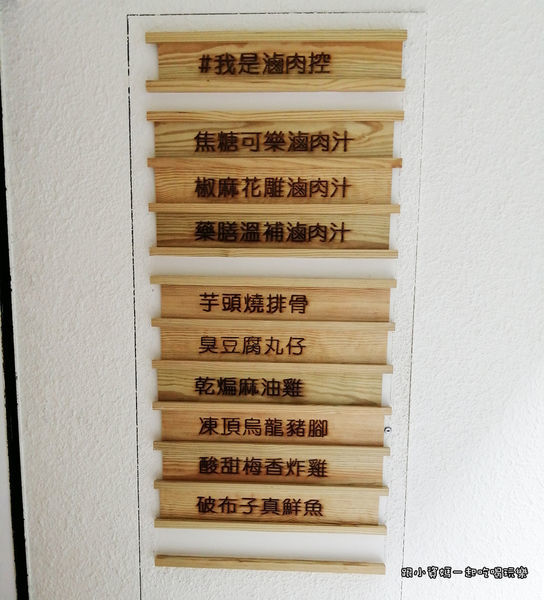 #我是滷肉控
焦糖可樂滷肉汁
椒麻花雕滷肉汁
藥膳溫補滷肉汁
芋頭燒排骨
臭豆腐丸仔
乾煸麻油雞
凍頂烏龍豬腳
酸甜梅香炸雞
破布子真鮮魚
跟小資媽一起吃喝玩樂